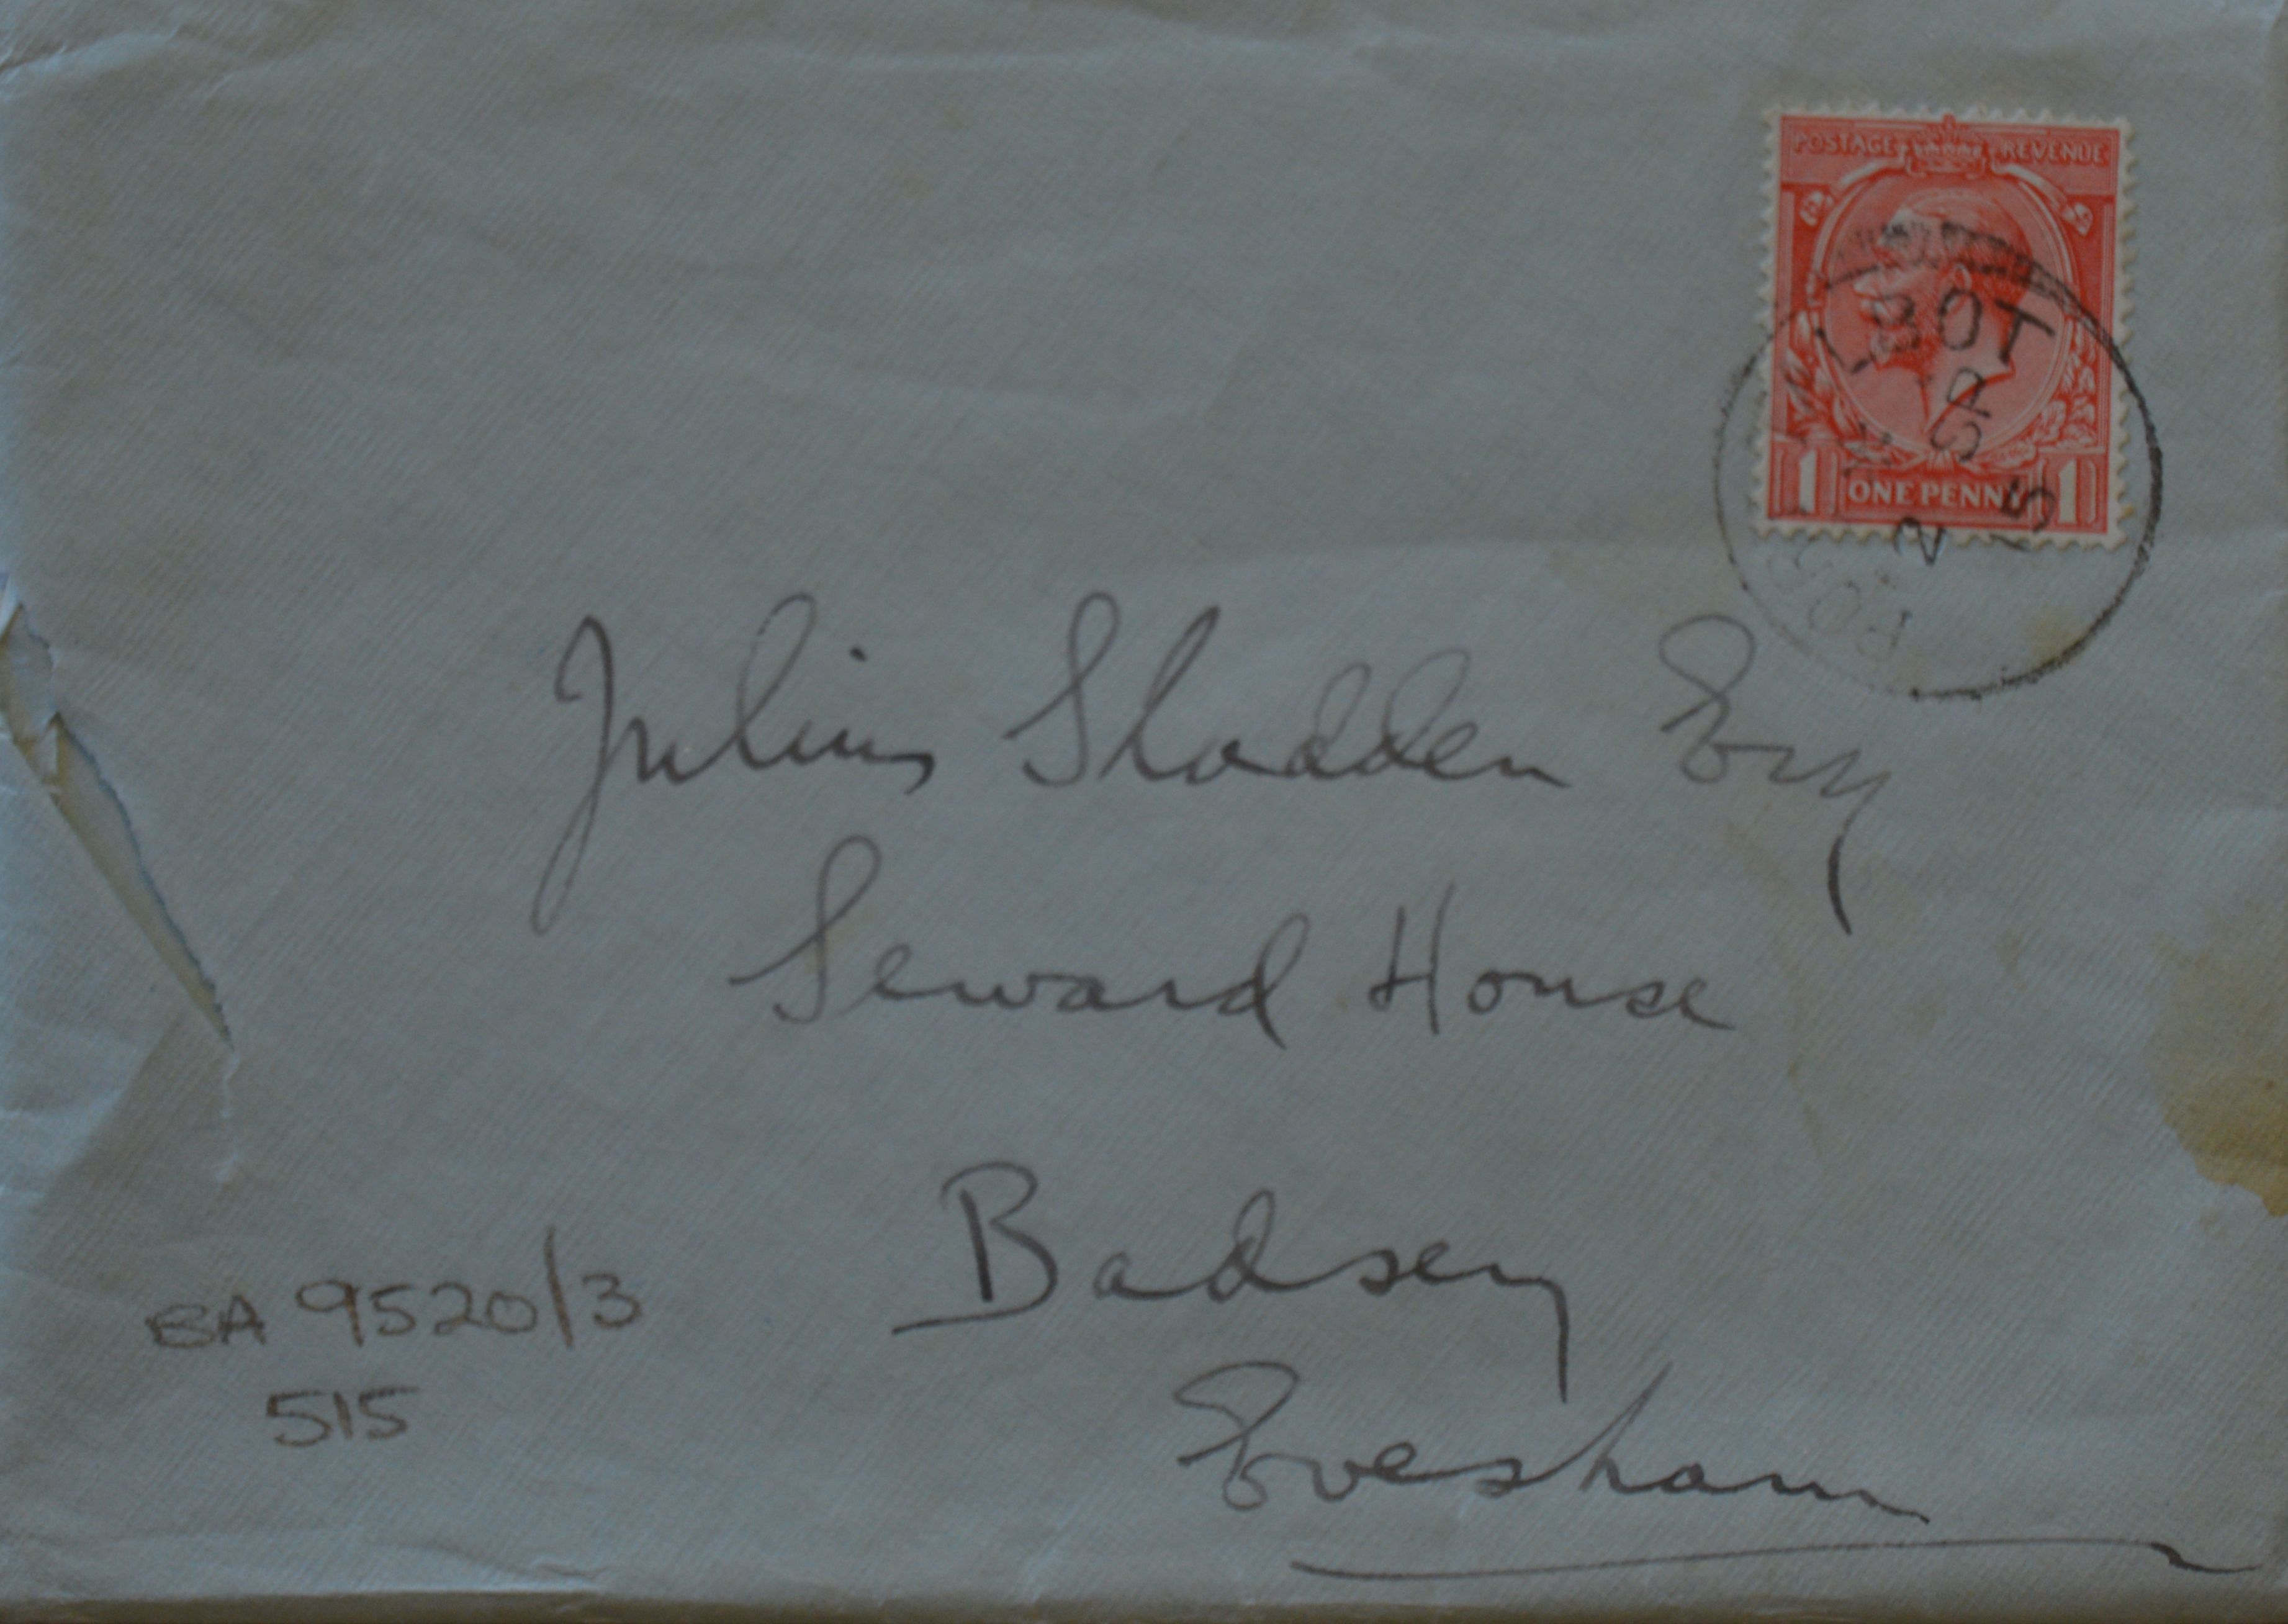 POSTAGE REVENUE
1 ONE PENNY 1
Julius Sladden Esq
Seward House
Badsey
Evesham
BA 9520/3
515